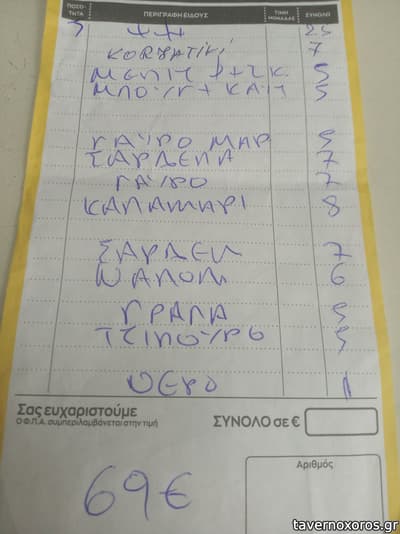 ΠΟΣΟ-ΤΗΤΑ ΠΕΡΙΓΡΑΦΗ ΕΙΔΟΥΣ ΤΙΜΗ ΜΟΝΑΔΟΣ ΣΥΝΟΛΟ
3 ψψ
χωριατικι 7
5
ΜΠΟΥΓ+ΚΑΥ 5
ΓΑΥΡΟ ΜΑΡ 5
ΣΑΡΔΕΛΑ 7
ΓΑΥΡΟ 7
ΚΑΛΑΜΑΡΙ 8
ΣΑΡΔΕΛ 7
6
ΓΡΑΠΑ 5
ΤΣΙΠΟΥΡΟ 5
ΝΕΡΟ 1
Σας ευχαριστούμε
Ο Φ.Π.Α. συμπεριλαμβάνεται στην τιμή
ΣΥΝΟΛΟ σε €
Αριθμός
69€
tavernoxoros.gr